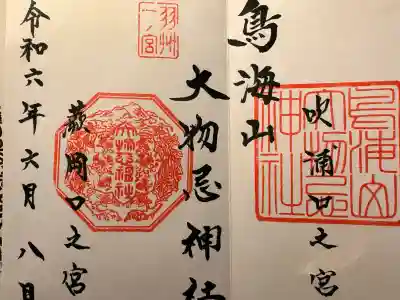 吹浦口之宮
鳥海山
大物忌
神社
鳥海山
大物忌神社
羽州
一ノ宮
大物忌神社
蕨岡口之宮
令和六年六月八日